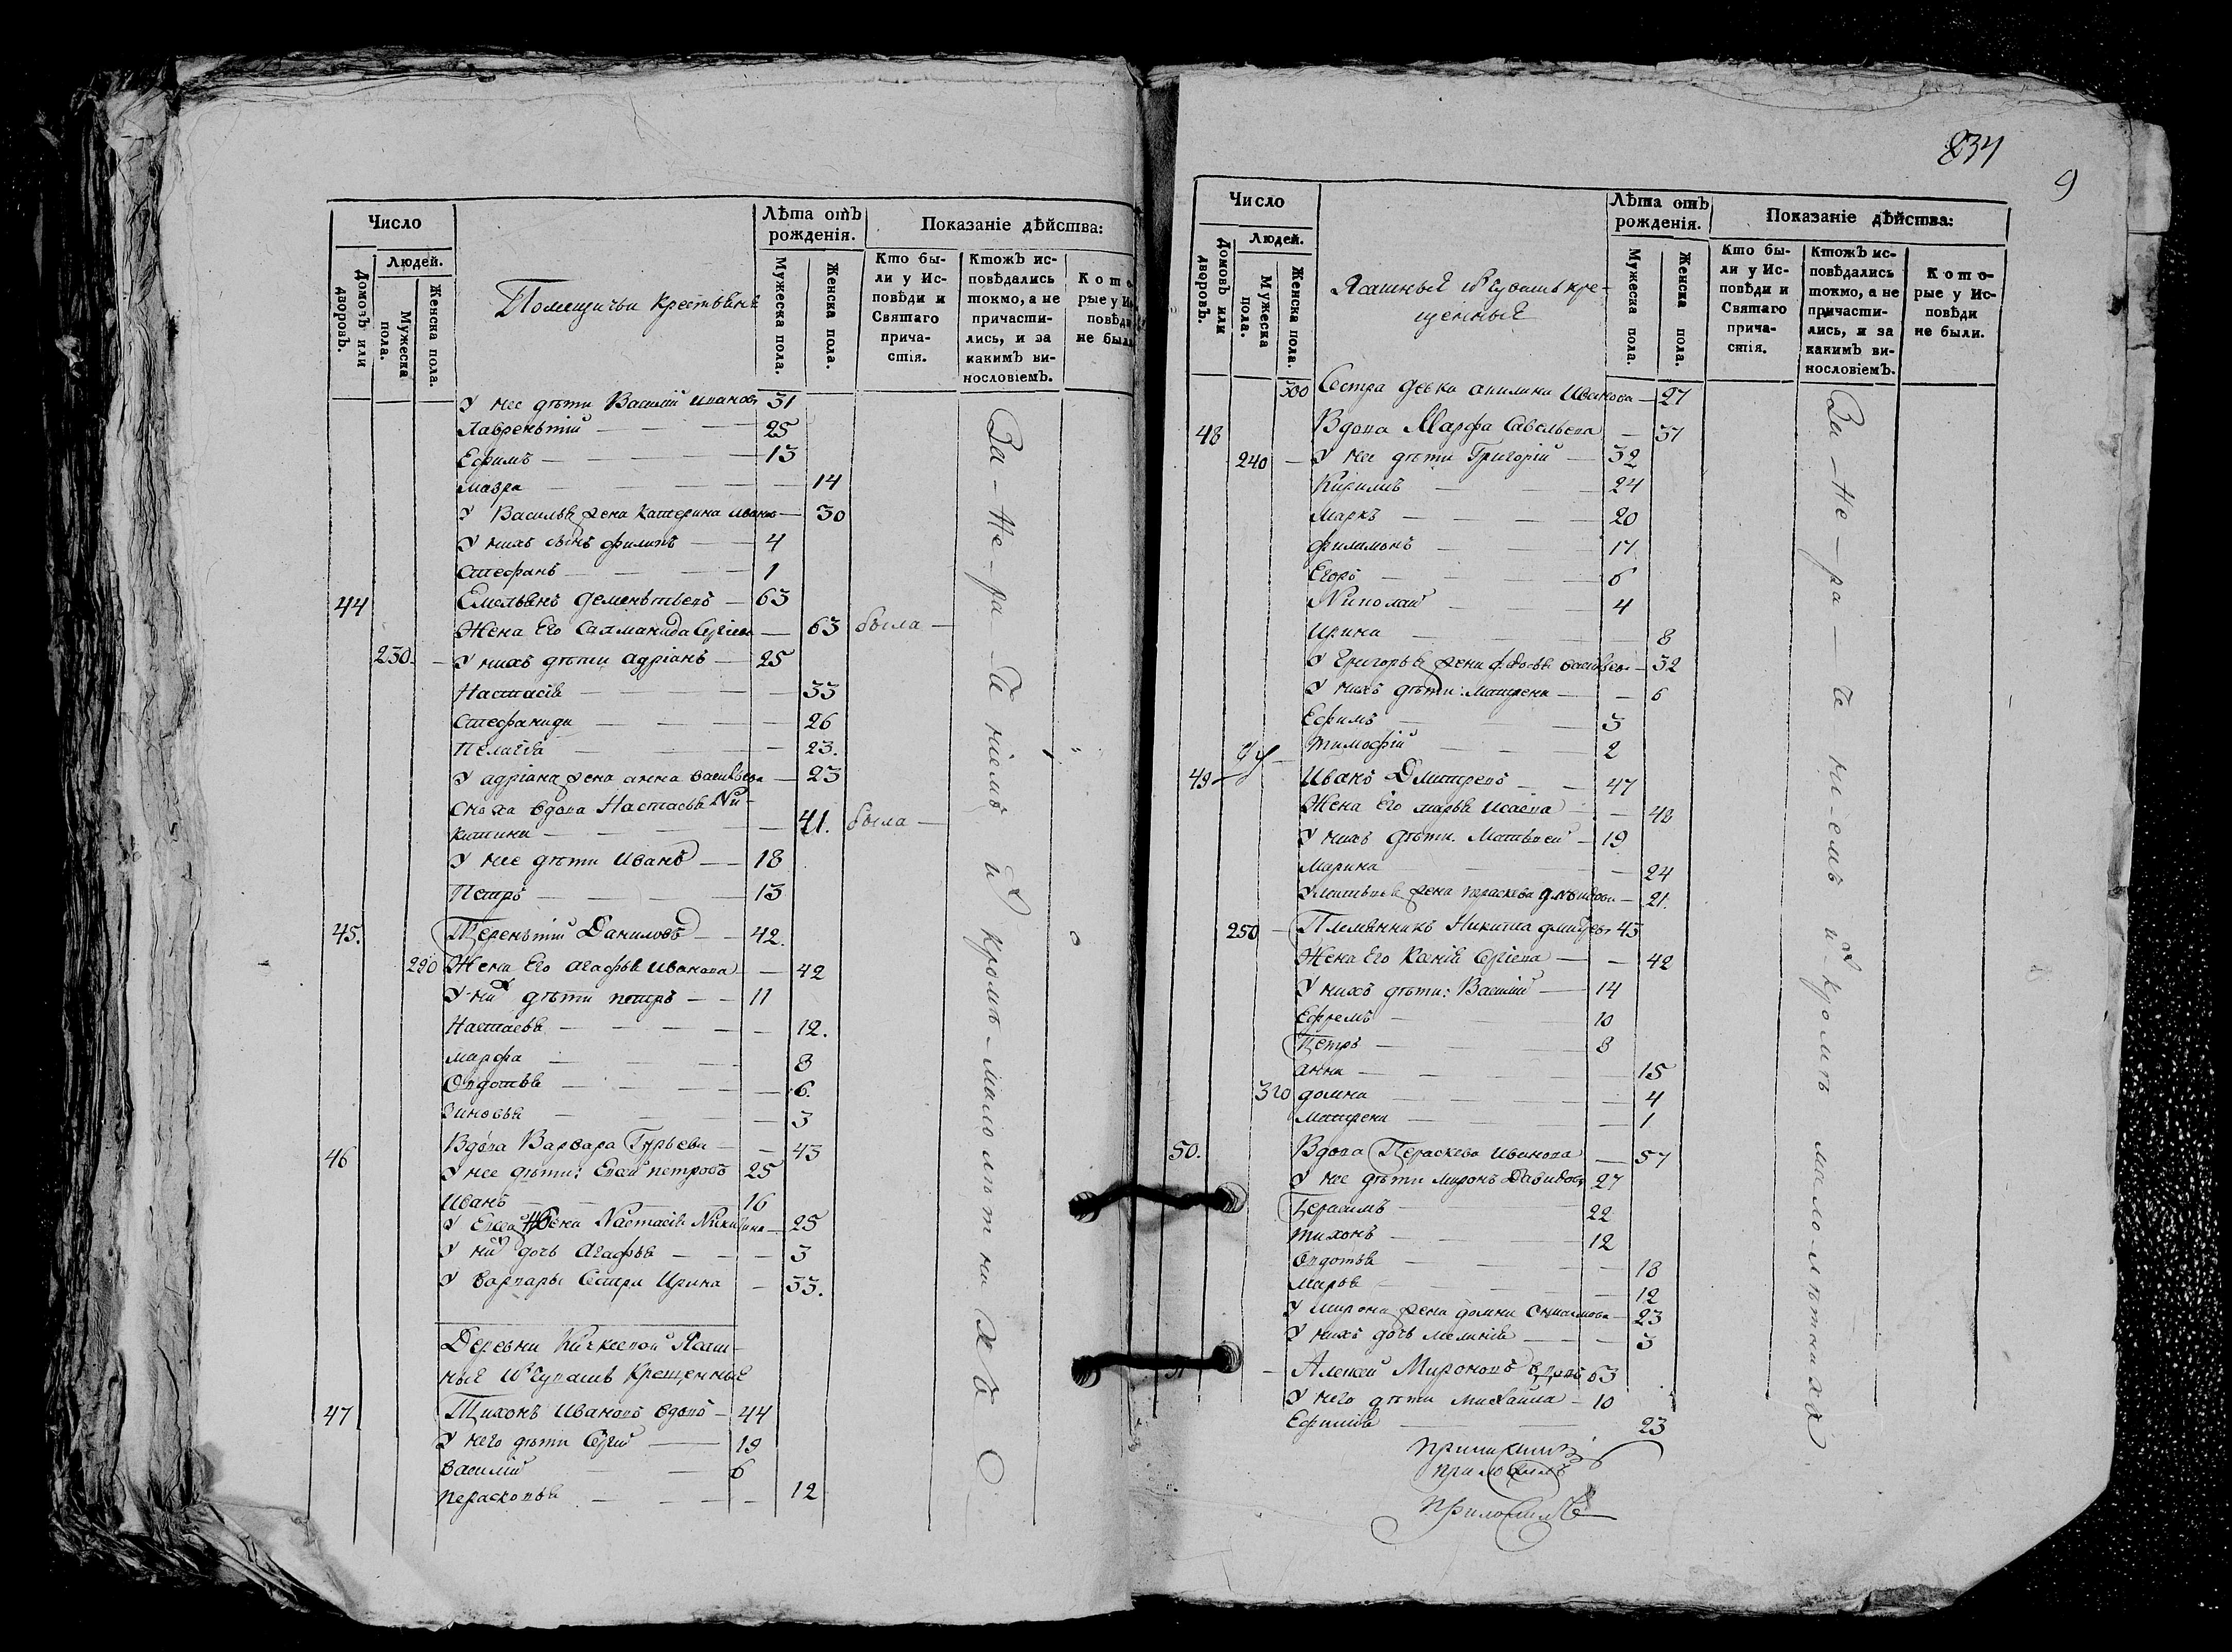 Число
Людей.
Домовъ или дворовъ.
Мужеска пола.
Женска пола.
Помещичьи крестьянѣ
Лѣта отъ рожденія.
Мужеска пола.
Женска пола.
Показаніе дѣйства:
Кто бы-
ли у Ис-
повѣди и
Святаго
прича-
стія.
Ктожъ ис-
повѣдались
токмо, а не
причасти-
лись, и за
какимъ ви-
нословіемъ.
У нее дѣти Василий Иванов 31
Лаврентій — 25
Ефимъ — 13
Мавра — 14
У Василья жена Катерина — 30
У нихъ сынъ Филипъ — 4
Стефанъ — 1
44 Емельянъ Дементьевъ — 63
Жена Его Саламанида Сергіева — 63 была —
230. — У нихъ дѣти Адріанъ — 25
Настасія — 33
Стефанида — 26
Пелагія — 23.
У Адріана жена Анна Васильева — 23
Сноха вдова Настасья Ни-
китина — 41. была —
У нее дѣти Иванъ — 18
Петръ — 13
45. Терентій Даниловъ — 42.
290 Жена Его Агафья Иванова — 42
У них дѣти Петръ — 11
Настасья — 12.
Марфа — 8
Овдотья — 6.
Зиновья — 3
46 Вдова Варвара Гурьева — 43
У нее дѣти: Евсей Петровъ 25
Иванъ — 16
У Евсея Жена Настасія — 25
У них дочь Агафья — 3
У Варвары Сестра Ирина — 33.
Деревни Ясаш-
ныя изъ Чувашъ Крещенныя
47 Тихонъ Ивановъ вдовъ — 44
У него дѣти Сергей — 19
Василій — 6
Перасковья — 12
За — не — ра — че ніемъ и кромѣ — мало лѣт ни хъ
234
9
Число
Людей.
Домовъ или дворовъ.
Мужеска пола.
Женска пола.
Ясашныя изъ Чувашъ кре-
щенныя
Лѣта отъ рожденія.
Мужеска пола.
Женска пола.
Показаніе дѣйства:
Кто бы-
ли у Ис-
повѣди и
Святаго
прича-
стія.
Ктожъ ис-
повѣдались
токмо, а не
причасти-
лись, и за
какимъ ви-
нословіемъ.
Кото-
рые у Ис-
повѣди
не были.
300 Сестра девка Акилина Иванова — 27
48 Вдова Марфа Савельева — 57
240 — У нее дѣти Григорій — 32
Кирилъ — 24
Маркъ — 20
Филимонъ — 17
Егоръ — 6
Николай — 4
Ирина — 8
У Григорья жена Федосья Васильева — 32
У нихъ дѣти: Матрена — 6
Ефимъ — 3
Тимофій — 2
49 Иванъ Дмитревъ — 47
Жена Его Марья Исаева — 48
У нихъ Дѣти. Матвѣей — 19
Марина — 24
У Матвѣея жена Пераскева — 21.
250 — Племянникъ Никита 45
Жена Его Ксенія Сергіева — 42
У нихъ дѣти: Василій — 14
Ефремъ — 10
Петръ — 8
Анна — 15
310 Домна — 4
Матрена — 1
50. Вдова Пераскева Иванова — 57
У нее дѣти Миронъ Давидов 27
Герасимъ — 22
Тихонъ — 12
Овдотья — 18
Марья — 12
У Мирона жена Домна — 23
У нихъ дочь Меланія — 3
Алексей Мироновъ вдовъ 63
У него дѣти Михайла — 10
Ефимія — 23
За — не — ра — че — ні — емъ и — кромѣ мало — лѣтнихъ